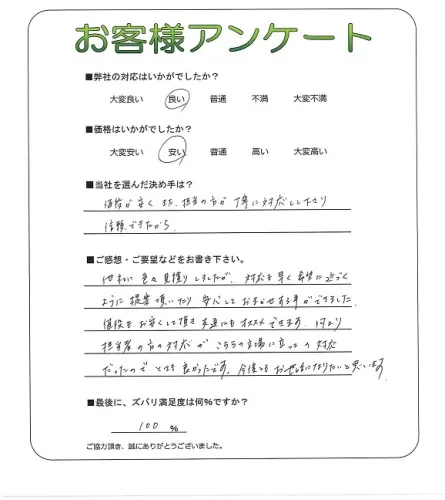 お客様アンケート
■弊社の対応はいかがでしたか？
大変良い 良い 普通 不満 大変不満
■価格はいかがでしたか？
大変安い 安い 普通 高い 大変高い
■当社を選んだ決め手は？
値段が安く また、担当の方が丁寧に対応して下さり
信頼できたから
■ご感想・ご要望などをお書き下さい。
他社に色々見積りしましたが、対応も早く希望に近づく
ように提案頂いたり 安心しておまかせする事ができました。
値段もお安くして頂き 友達にもオススメできます。何より
担当者の方の対応が こちらの立場に立っての対応
だったので とても良かったです。今後もお世話になりたいと思います。
■最後に、ズバリ満足度は何％ですか？
100 %
ご協力頂き、誠にありがとうございました。